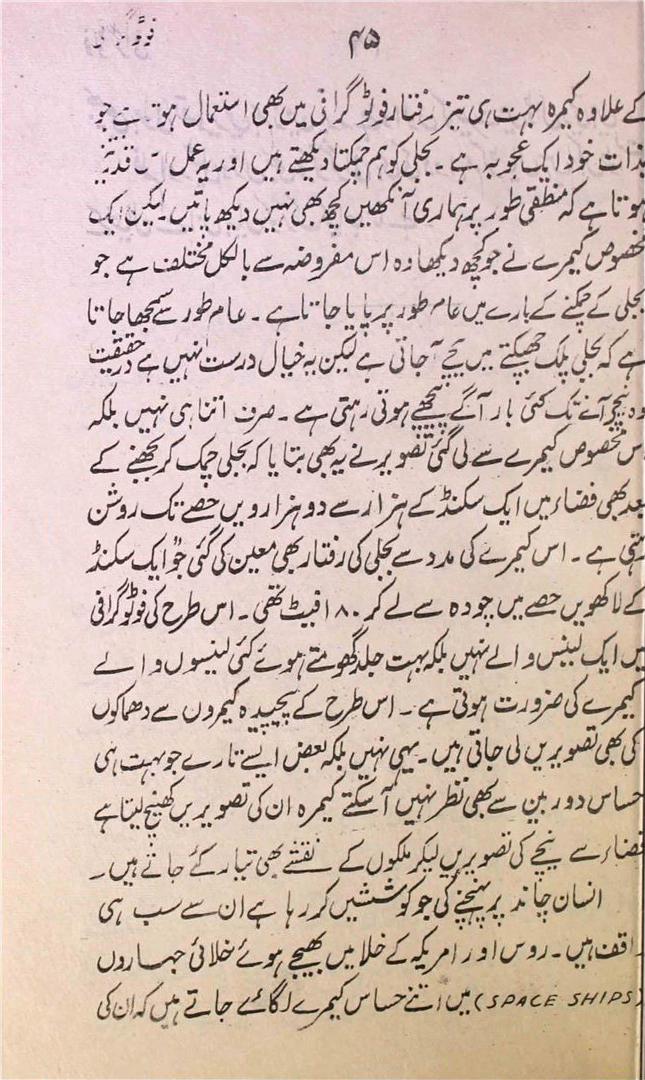 ۴۵
کے علاوہ کیمرہ بہت ہی تیز رفتار فوٹو گرافی میں بھی استعمال ہوتا ہے جو
بذات خود ایک عجوبہ ہے ۔ بجلی کو ہم چمکتا دیکھتے ہیں اور یہ عمل اس قدر تیز
ہوتا ہے کہ منطقی طور پر ہماری آنکھیں کچھ بھی نہیں دیکھ پاتیں۔ لیکن ایک
مخصوص کیمرے نے جو کچھ دیکھا وہ اس مفروضہ سے بالکل مختلف ہے جو
بجلی کے چمکنے کے بارے میں عام طور پر پایا جاتا ہے ۔ عام طور سے سمجھا جاتا
ہے کہ بجلی پلک جھپکتے میں نیچے آجاتی ہے لیکن یہ خیال درست نہیں ہے درحقیقت
وہ نیچے آنے تک کئی بار آگے پیچھے ہوتی رہتی ہے ۔ صرف اتنا ہی نہیں بلکہ
اس مخصوص کیمرے سے لی گئی تصویر نے یہ بھی بتایا کہ بجلی چمک کر بجھنے کے
بعد بھی فضاء میں ایک سکنڈ کے ہزار سے دو ہزارویں حصے تک روشن
رہتی ہے ۔ اس کیمرے کی مدد سے بجلی کی رفتار بھی معین کی گئی جو ایک سکنڈ
کے لاکھویں حصے میں چودہ سے لے کر ۱۸۰ فیٹ تھی ۔ اس طرح کی فوٹو گرافی
میں ایک لینس والے نہیں بلکہ بہت جلد گھومتے ہوئے کئی لینسوں والے
کیمرے کی ضرورت ہوتی ہے ۔ اس طرح کے پیچیدہ کیمروں سے دھماکوں
کی بھی تصویریں لی جاتی ہیں ۔ یہی نہیں بلکہ بعض ایسے تارے جو بہت ہی
حساس دوربین سے بھی نظر نہیں آسکتے کیمرہ ان کی تصویریں کھینچ لیتا ہے
فضاء سے نیچے کی تصویریں لیکر ملکوں کے نقشے بھی تیار کئے جاتے ہیں ۔
انسان چاند پر پہنچنے کی جو کوششیں کر رہا ہے ان سے سب ہی
واقف ہیں ۔ روس اور امریکہ کے خلا میں بھیجے ہوئے خلائی جہازوں
(SPACE SHIPS) میں اتنے حساس کیمرے لگائے جاتے ہیں کہ ان کی